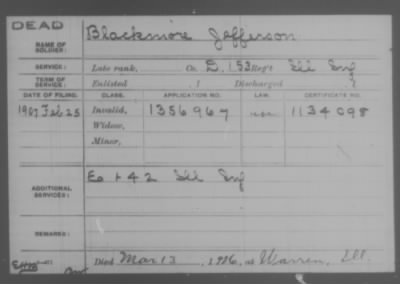 DEAD
NAME OF SOLDIER: Blackmore Jefferson
SERVICE: Late rank, Co. D. 153 Reg't Ill Inf
TERM OF SERVICE: Enlisted , 1 Discharged , 1
DATE OF FILING. CLASS. APPLICATION NO. LAW. CERTIFICATE NO.
1907 Feb 25 Invalid, 1356967 1134098
Widow,
Minor,
ADDITIONAL SERVICES: E 142 Ill Inf
REMARKS:
Died Mar 13, 1916, at Warren, Ill.